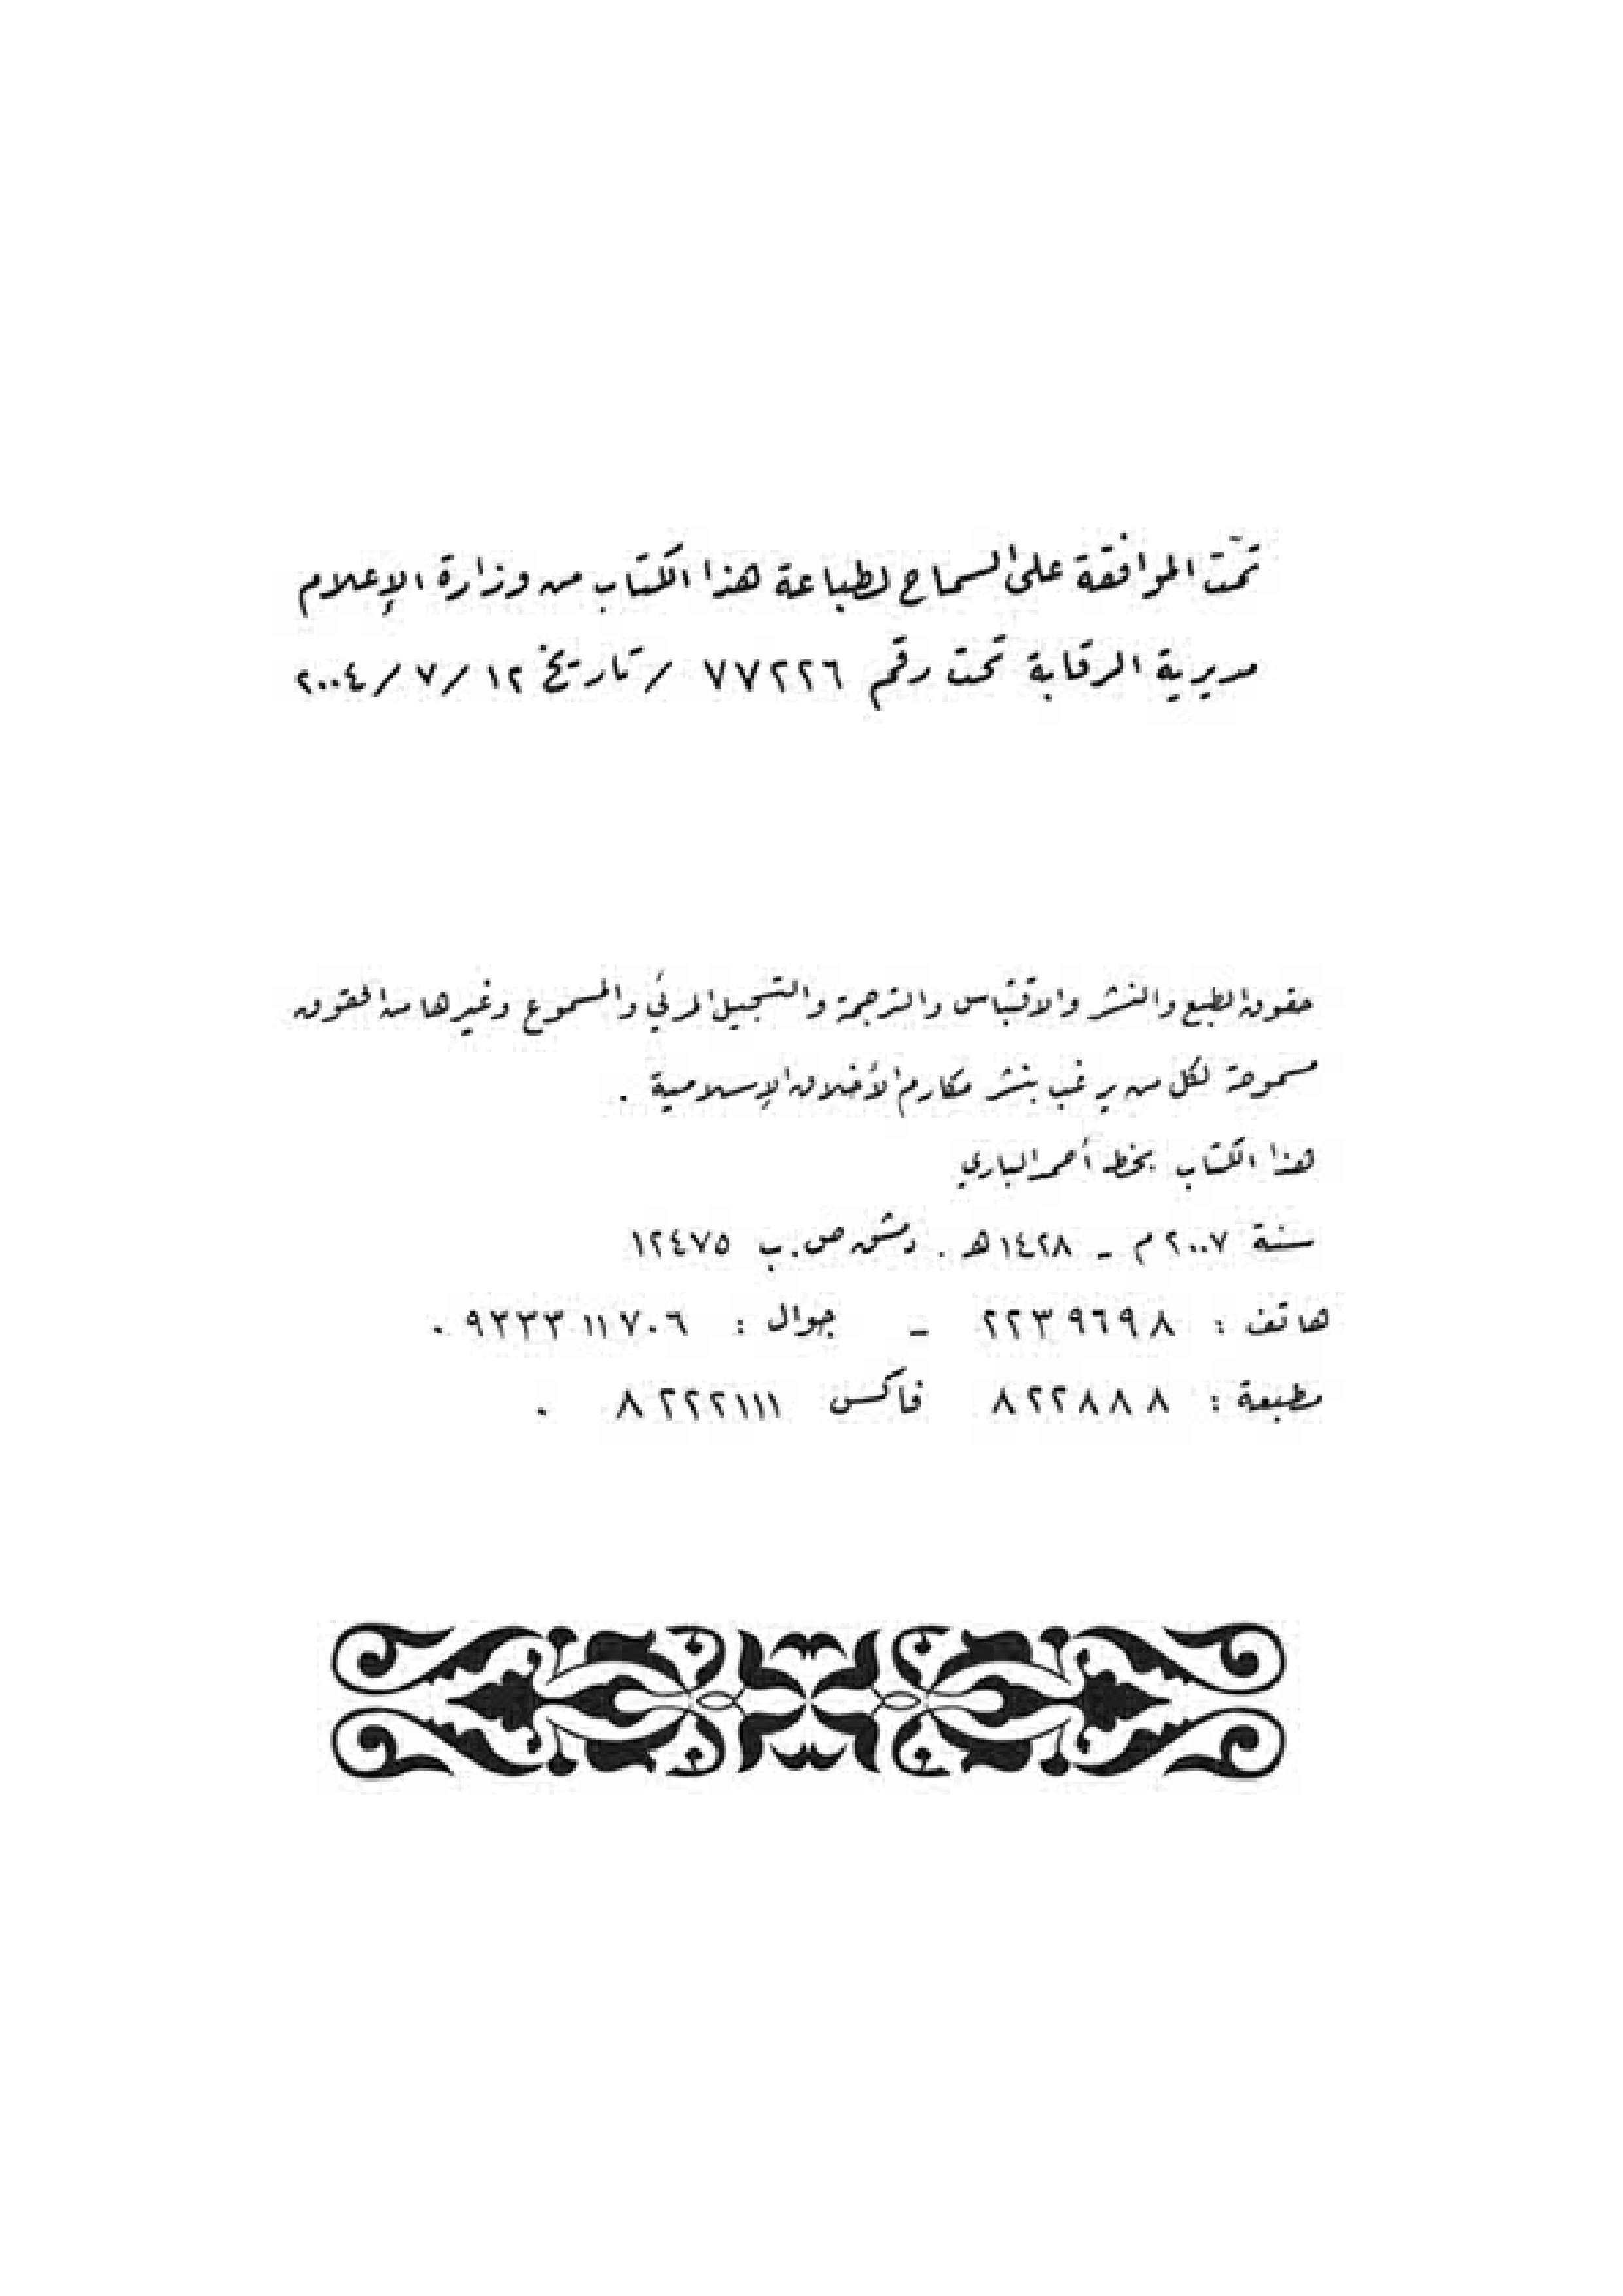 تمّت الموافقة على السماح لطباعة هذا الكتاب من وزارة الإعلام
مديرية الرقابة تحت رقم ٧٧٢٢٦ / تاريخ ١٢ / ٧ / ٢٠٠٤
حقوق الطبع والنشر والاقتباس والترجمة والتسجيل المرئي والمسموع وغيرها من الحقوق
مسموحة لكل من يرغب بنشر مكارم الأخلاق الإسلامية .
هذا الكتاب بخط أحمد الباري
سنة ٢٠٠٧ م - ١٤٢٨ هـ . دمشق ص.ب ١٢٤٧٥
هاتف : ٢٢٣٩٦٩٨ - جوال : ٩٣٣٣١١٧٠٦ .
مطبعة : ٨٢٢٨٨٨ فاكس ٨٢٢٢١١١ .